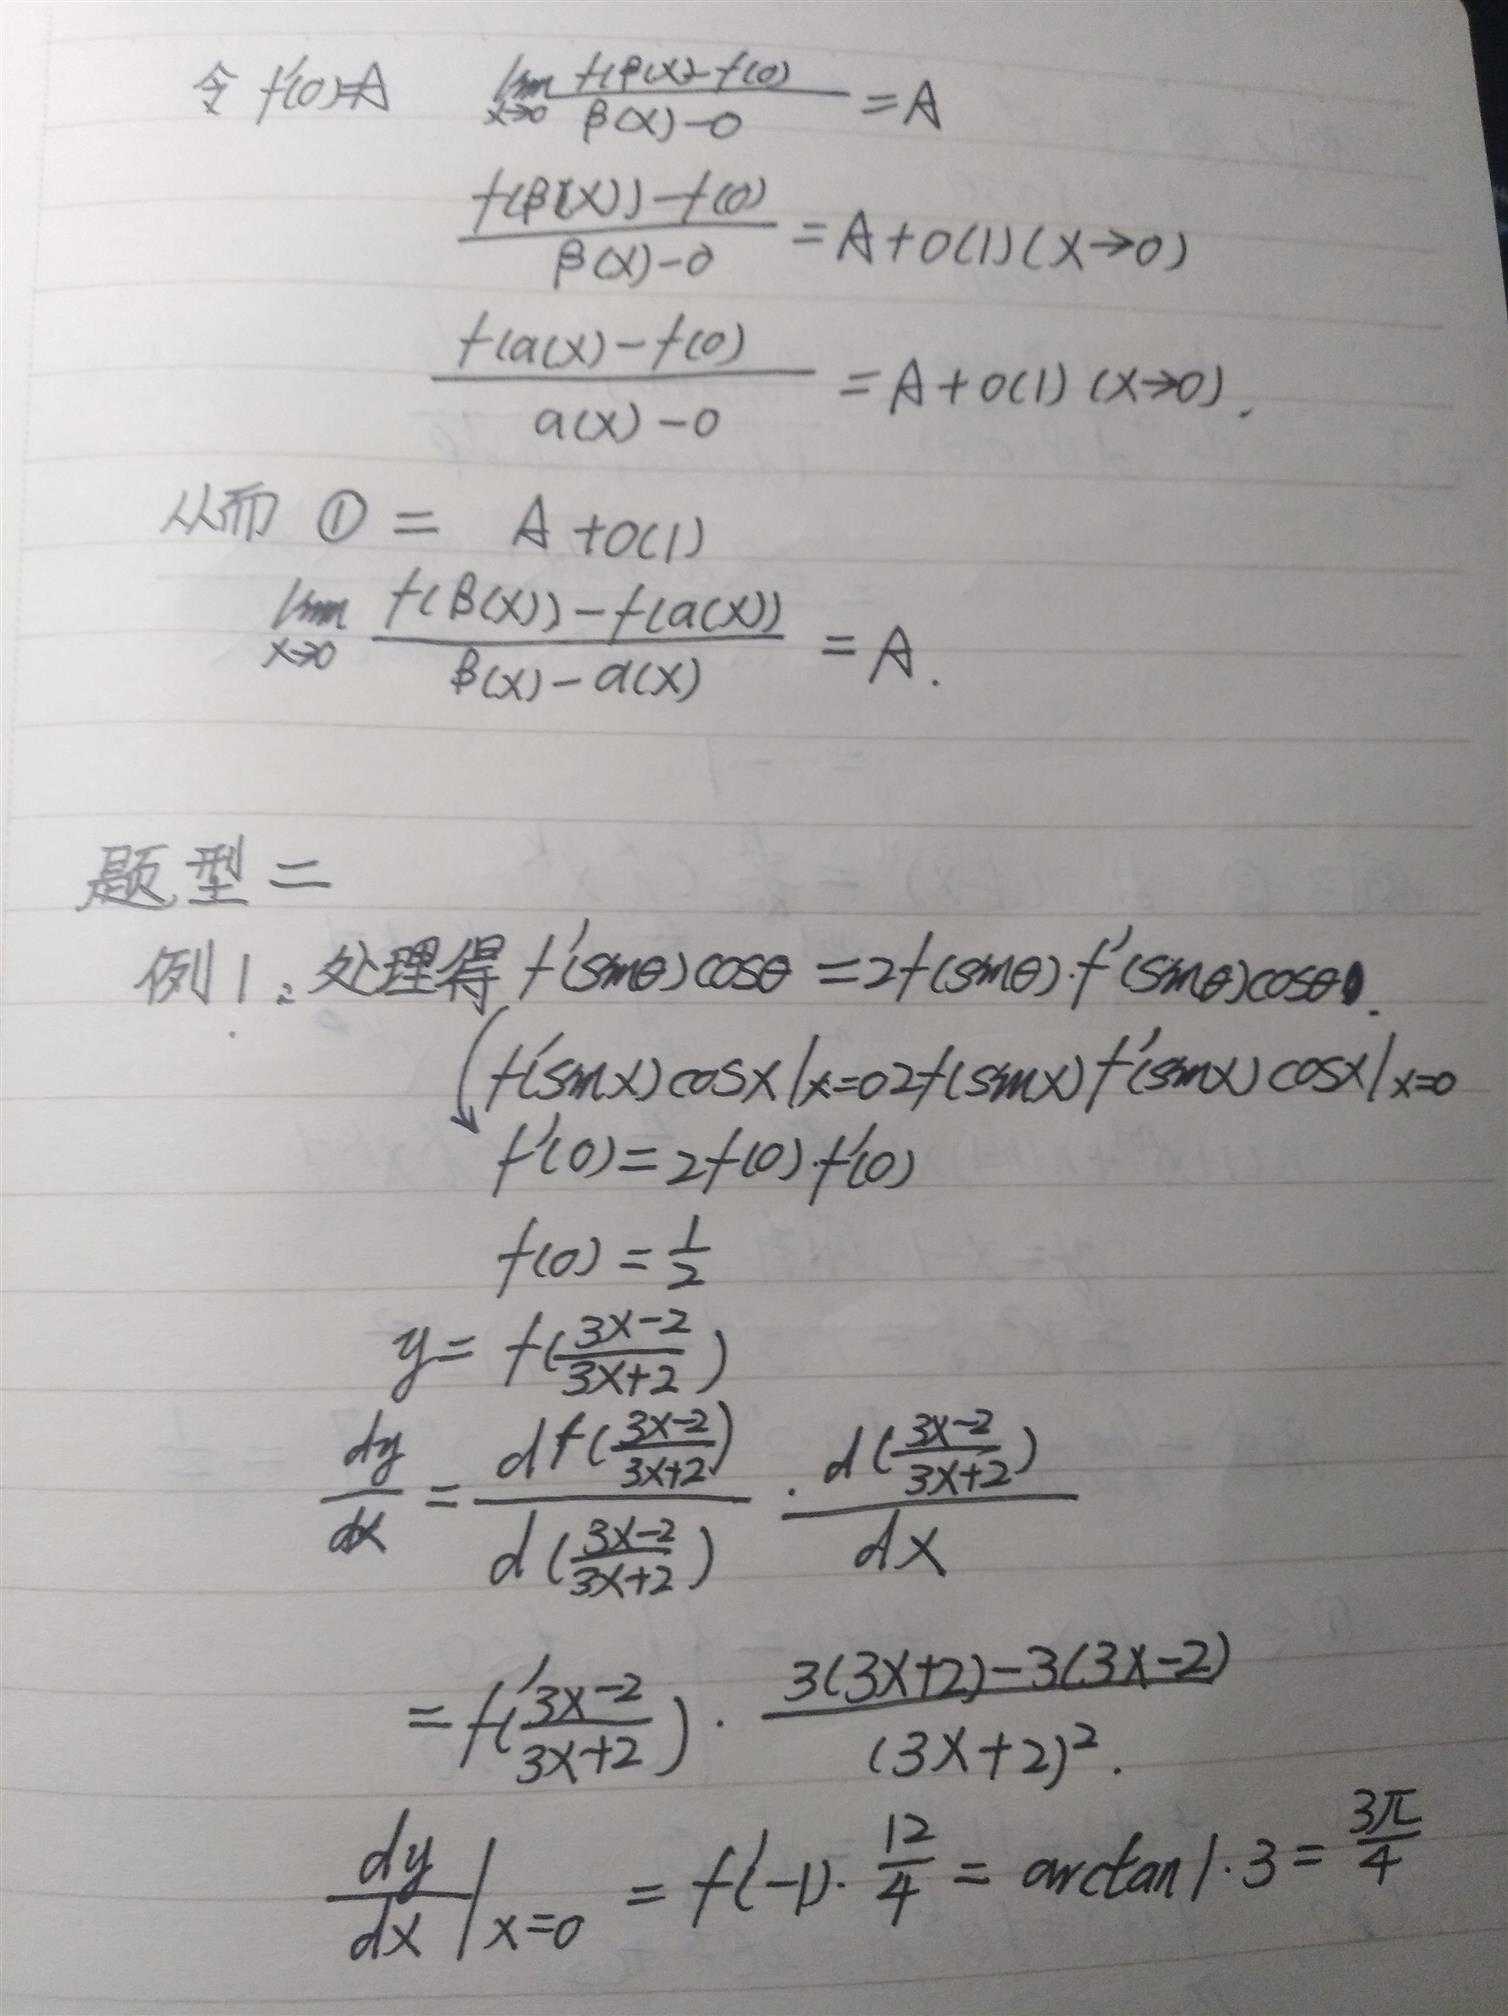 令 f'(0)=A lim x→0 f(β(x))-f(0) / β(x)-0 = A
f(β(x))-f(0) / β(x)-0 = A+o(1)(x→0)
f(a(x)-f(0) / a(x)-0 = A+o(1)(x→0).
从而 ① = A+o(1)
lim x→0 f(β(x))-f(a(x)) / β(x)-a(x) = A.
题型二
例1: 处理得 f'(sinθ)cosθ=2f(sinθ)·f'(sinθ)cosθ.
f'(sinx)cosx|x=0 2f(sinx)f'(sinx)cosx|x=0
f'(0)=2f(0)·f'(0)
f(0)=1/2
y=f(3x-2/3x+2)
dy/dx = df(3x-2/3x+2) / d(3x-2/3x+2) · d(3x-2/3x+2) / dx
=f'(3x-2/3x+2)· 3(3x+2)-3(3x-2) / (3x+2)².
dy/dx|x=0 = f'(-1)·12/4 = arctan1·3 = 3π/4